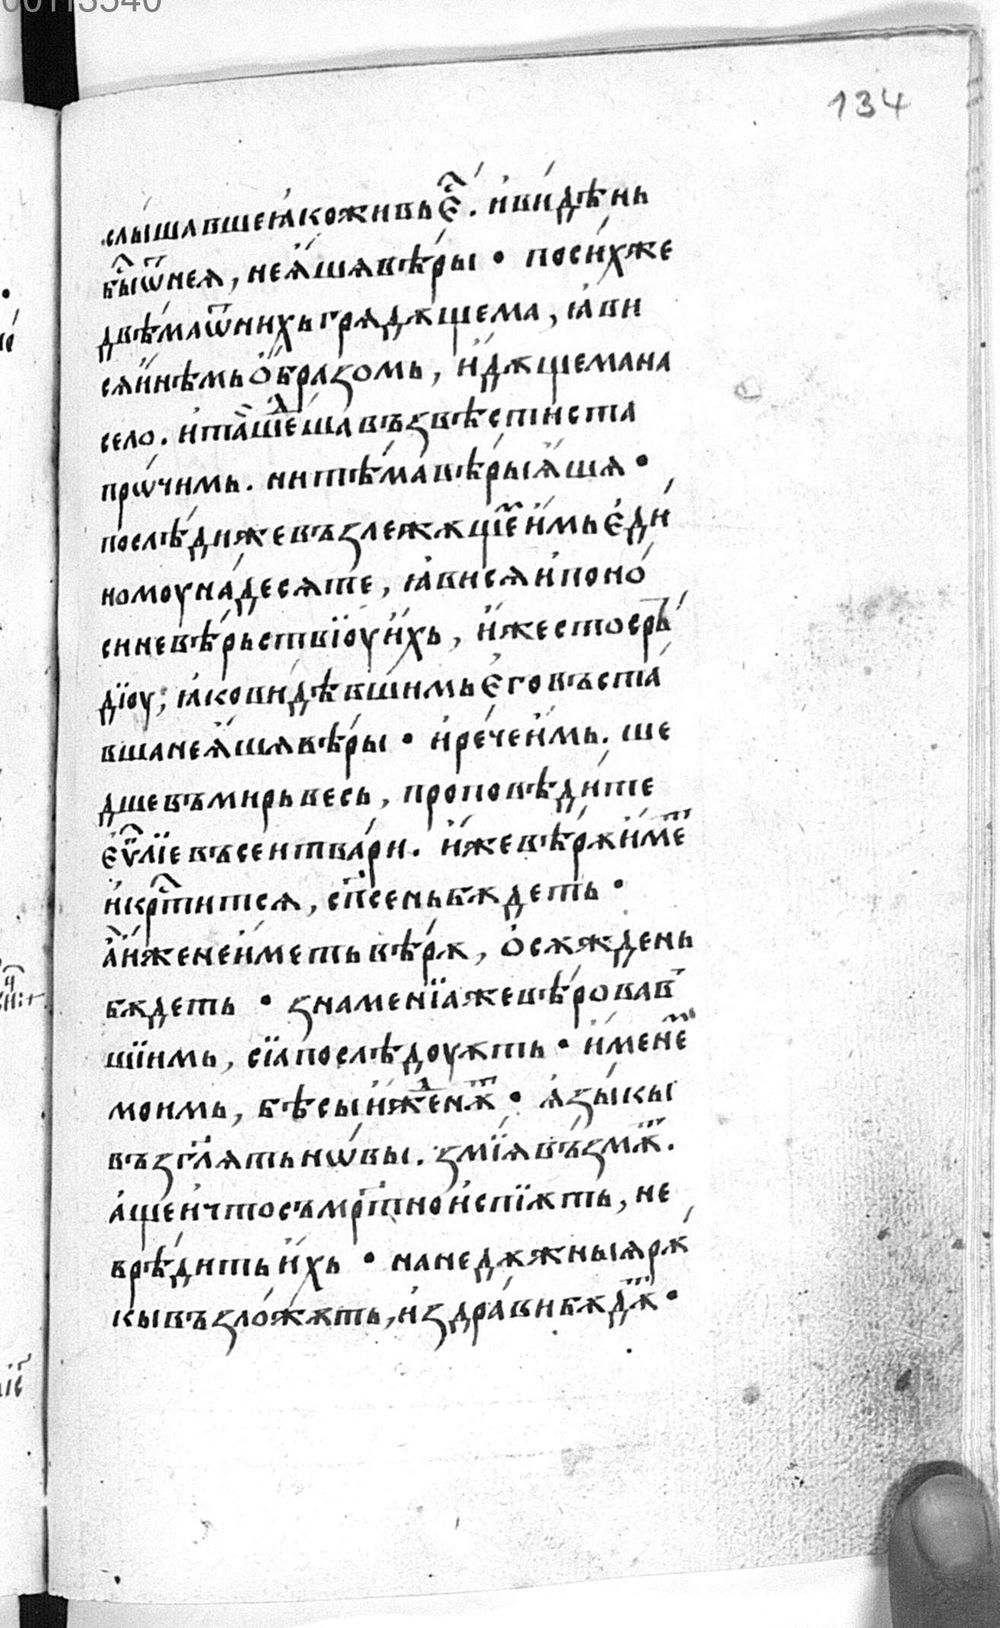 134
слы́шавшеꙗ҆́коживьє҆́с҃. и҆ви́дѣнь
бы́с҃ѿнея, неꙗ҆́шявѣ́ры • поси́хже
двѣ́маѿни́хьгрядѫщема, ꙗ҆ви
сяи҆нѣмьѻ҆́бразомь, и҆дѫщемана
село. и҆та̀ше́дшавъзвѣсти́ста
прѡ́чимь. нитѣ́мавѣ́рыꙗ҆́шя •
послѣ́дижевъзлежѫщеи҆́мьє҆ди
номоуна́десяте, ꙗ҆ви́сяи҆поно́
синевѣ́рьствїоуи҆́хь, и҆жестосрь́
дїоу; ꙗ҆кови́дѣвшимьє҆говъста́
вшанеꙗ҆́шявѣ́ры • и҆рече́и҆мь. ше
дшевъмирьвесь, проповѣди́те
є҆ѵ҃лїевъсеитва́ри. и҆́жевѣ́рѫи҆́ме
и҆крⷭ҇титися, сп҃сеньбѫдеть •
а҆́и҆женеи҆меть вѣ́рѫ, ѻ҆сѫжде́нь
бѫдеть • знаменїажевѣ́ровав
шїимь, сїапослѣ́доуѫть • и҆́мене
моимь, бѣ́сыи҆жденѫт • ѧ҆зы́кы
възг҃лятьнѡ́вы. змїѧвъ́змѫт.
а҆́щеи҆чтосъмрⷮ҇ноиспїѫть, не
врѣди́тьи҆́хь • нанедѫжныярѫ́
кывъзло́жѫть, и҆здра́вибѫдѫт •